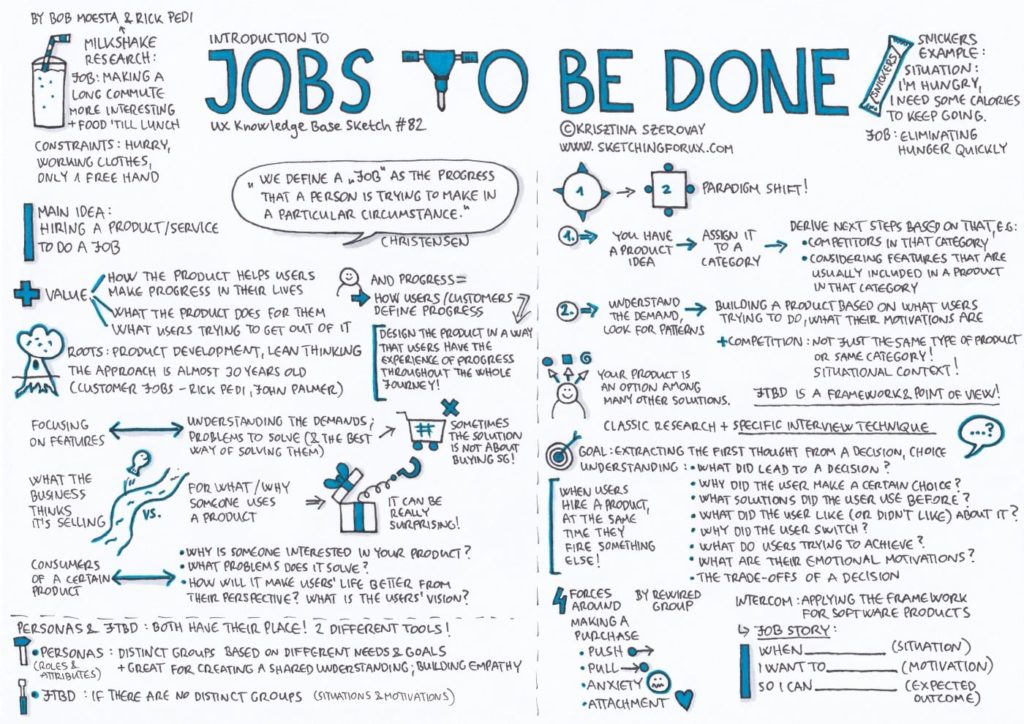 BY BOB MOESTA & RICK PEDI
MILKSHAKE
RESEARCH:
JOB: MAKING A
LONG COMMUTE
MORE INTERESTING
+ FOOD 'TILL LUNCH
CONSTRAINTS: HURRY,
WORKING CLOTHES,
ONLY 1 FREE HAND
INTRODUCTION TO
JOBS TO BE DONE
UX Knowledge Base Sketch #82
©KRISZTINA SZEROVAY
WWW.SKETCHINGFORUX.COM
SNICKERS
SNICKERS
EXAMPLE:
SITUATION:
I'M HUNGRY,
I NEED SOME CALORIES
TO KEEP GOING.
JOB: ELIMINATING
HUNGER QUICKLY
„WE DEFINE A „JOB" AS THE PROGRESS
THAT A PERSON IS TRYING TO MAKE IN
A PARTICULAR CIRCUMSTANCE."
CHRISTENSEN
MAIN IDEA:
HIRING A PRODUCT/SERVICE
TO DO A JOB
+ VALUE
HOW THE PRODUCT HELPS USERS
MAKE PROGRESS IN THEIR LIVES
WHAT THE PRODUCT DOES FOR THEM
WHAT USERS TRYING TO GET OUT OF IT
AND PROGRESS =
HOW USERS/CUSTOMERS
DEFINE PROGRESS
DESIGN THE PRODUCT IN A WAY
THAT USERS HAVE THE
EXPERIENCE OF PROGRESS
THROUGHOUT THE WHOLE
JOURNEY!
ROOTS: PRODUCT DEVELOPMENT, LEAN THINKING
THE APPROACH IS ALMOST 30 YEARS OLD
(CUSTOMER JOBS - RICK PEDI, JOHN PALMER)
FOCUSING
ON FEATURES
UNDERSTANDING THE DEMANDS;
PROBLEMS TO SOLVE (& THE BEST
WAY OF SOLVING THEM)
#
SOMETIMES
THE SOLUTION
IS NOT ABOUT
BUYING SG!
WHAT THE
BUSINESS
THINKS
IT'S SELLING
VS.
FOR WHAT/WHY
SOMEONE USES
A PRODUCT
?
IT CAN BE
REALLY
SURPRISING!
CONSUMERS
OF A CERTAIN
PRODUCT
• WHY IS SOMEONE INTERESTED IN YOUR PRODUCT?
• WHAT PROBLEMS DOES IT SOLVE?
• HOW WILL IT MAKE USERS' LIFE BETTER FROM
THEIR PERSPECTIVE? WHAT IS THE USERS' VISION?
PERSONAS & JTBD: BOTH HAVE THEIR PLACE! 2 DIFFERENT TOOLS!
• PERSONAS: DISTINCT GROUPS BASED ON DIFFERENT NEEDS & GOALS
(ROLES &
ATTRIBUTES)
+ GREAT FOR CREATING A SHARED UNDERSTANDING; BUILDING EMPATHY
• JTBD: IF THERE ARE NO DISTINCT GROUPS (SITUATIONS & MOTIVATIONS)
1 → 2 PARADIGM SHIFT!
1.
YOU HAVE
A PRODUCT
IDEA
ASSIGN IT
TO A
CATEGORY
DERIVE NEXT STEPS BASED ON THAT, E.G:
• COMPETITORS IN THAT CATEGORY
• CONSIDERING FEATURES THAT ARE
USUALLY INCLUDED IN A PRODUCT
IN THAT CATEGORY
2.
UNDERSTAND
THE DEMAND,
LOOK FOR PATTERNS
BUILDING A PRODUCT BASED ON WHAT USERS
TRYING TO DO, WHAT THEIR MOTIVATIONS ARE
+ COMPETITION: NOT JUST THE SAME TYPE OF PRODUCT
OR SAME CATEGORY!
SITUATIONAL CONTEXT!
YOUR PRODUCT IS
AN OPTION AMONG
MANY OTHER SOLUTIONS.
JTBD IS A FRAMEWORK & POINT OF VIEW!
CLASSIC RESEARCH + SPECIFIC INTERVIEW TECHNIQUE
...?
GOAL: EXTRACTING THE FIRST THOUGHT FROM A DECISION, CHOICE
UNDERSTANDING: • WHAT DID LEAD TO A DECISION?
• WHY DID THE USER MAKE A CERTAIN CHOICE?
• WHAT SOLUTIONS DID THE USER USE BEFORE?
• WHAT DID THE USER LIKE (OR DIDN'T LIKE) ABOUT IT?
• WHY DID THE USER SWITCH?
• WHAT DO USERS TRYING TO ACHIEVE?
• WHAT ARE THEIR EMOTIONAL MOTIVATIONS?
• THE TRADE-OFFS OF A DECISION
WHEN USERS
HIRE A PRODUCT,
AT THE SAME
TIME THEY
FIRE SOMETHING
ELSE!
4 FORCES BY REWIRED
AROUND GROUP
MAKING A
PURCHASE
• PUSH
• PULL
• ANXIETY
• ATTACHMENT
INTERCOM: APPLYING THE FRAMEWORK
FOR SOFTWARE PRODUCTS
JOB STORY:
WHEN ________ (SITUATION)
I WANT TO ________ (MOTIVATION)
SO I CAN ________ (EXPECTED
OUTCOME)